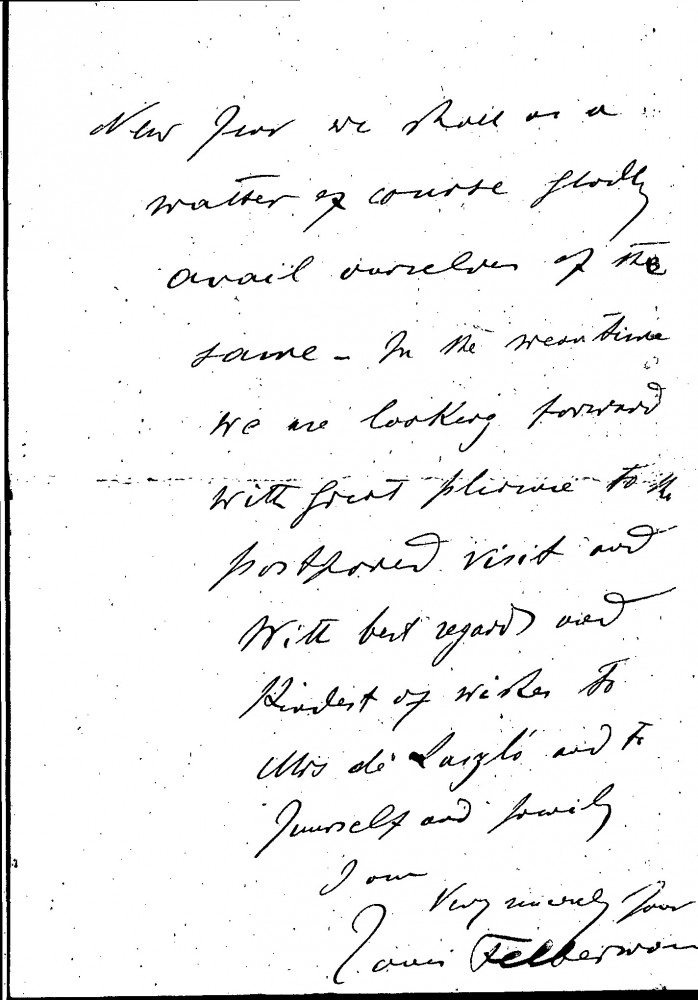 New Year we shall as a
matter of course gladly
avail ourselves of the
same – In the meantime
we are looking forward
with great pleasure to the
postponed visit and
With best regards and
Kindest of wishes to
Mrs de László and to
Yourself and family
I am
Very sincerely Your
Louis Felberman